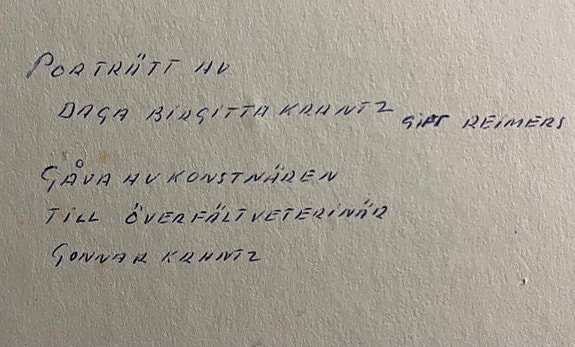 PORTRÄTT AV
DAGA BIRGITTA KRANTZ GIFT REIMERS
GÅVA AV KONSTNÄREN
TILL ÖVERFÄLTVETERINÄR
GUNNAR KRANTZ